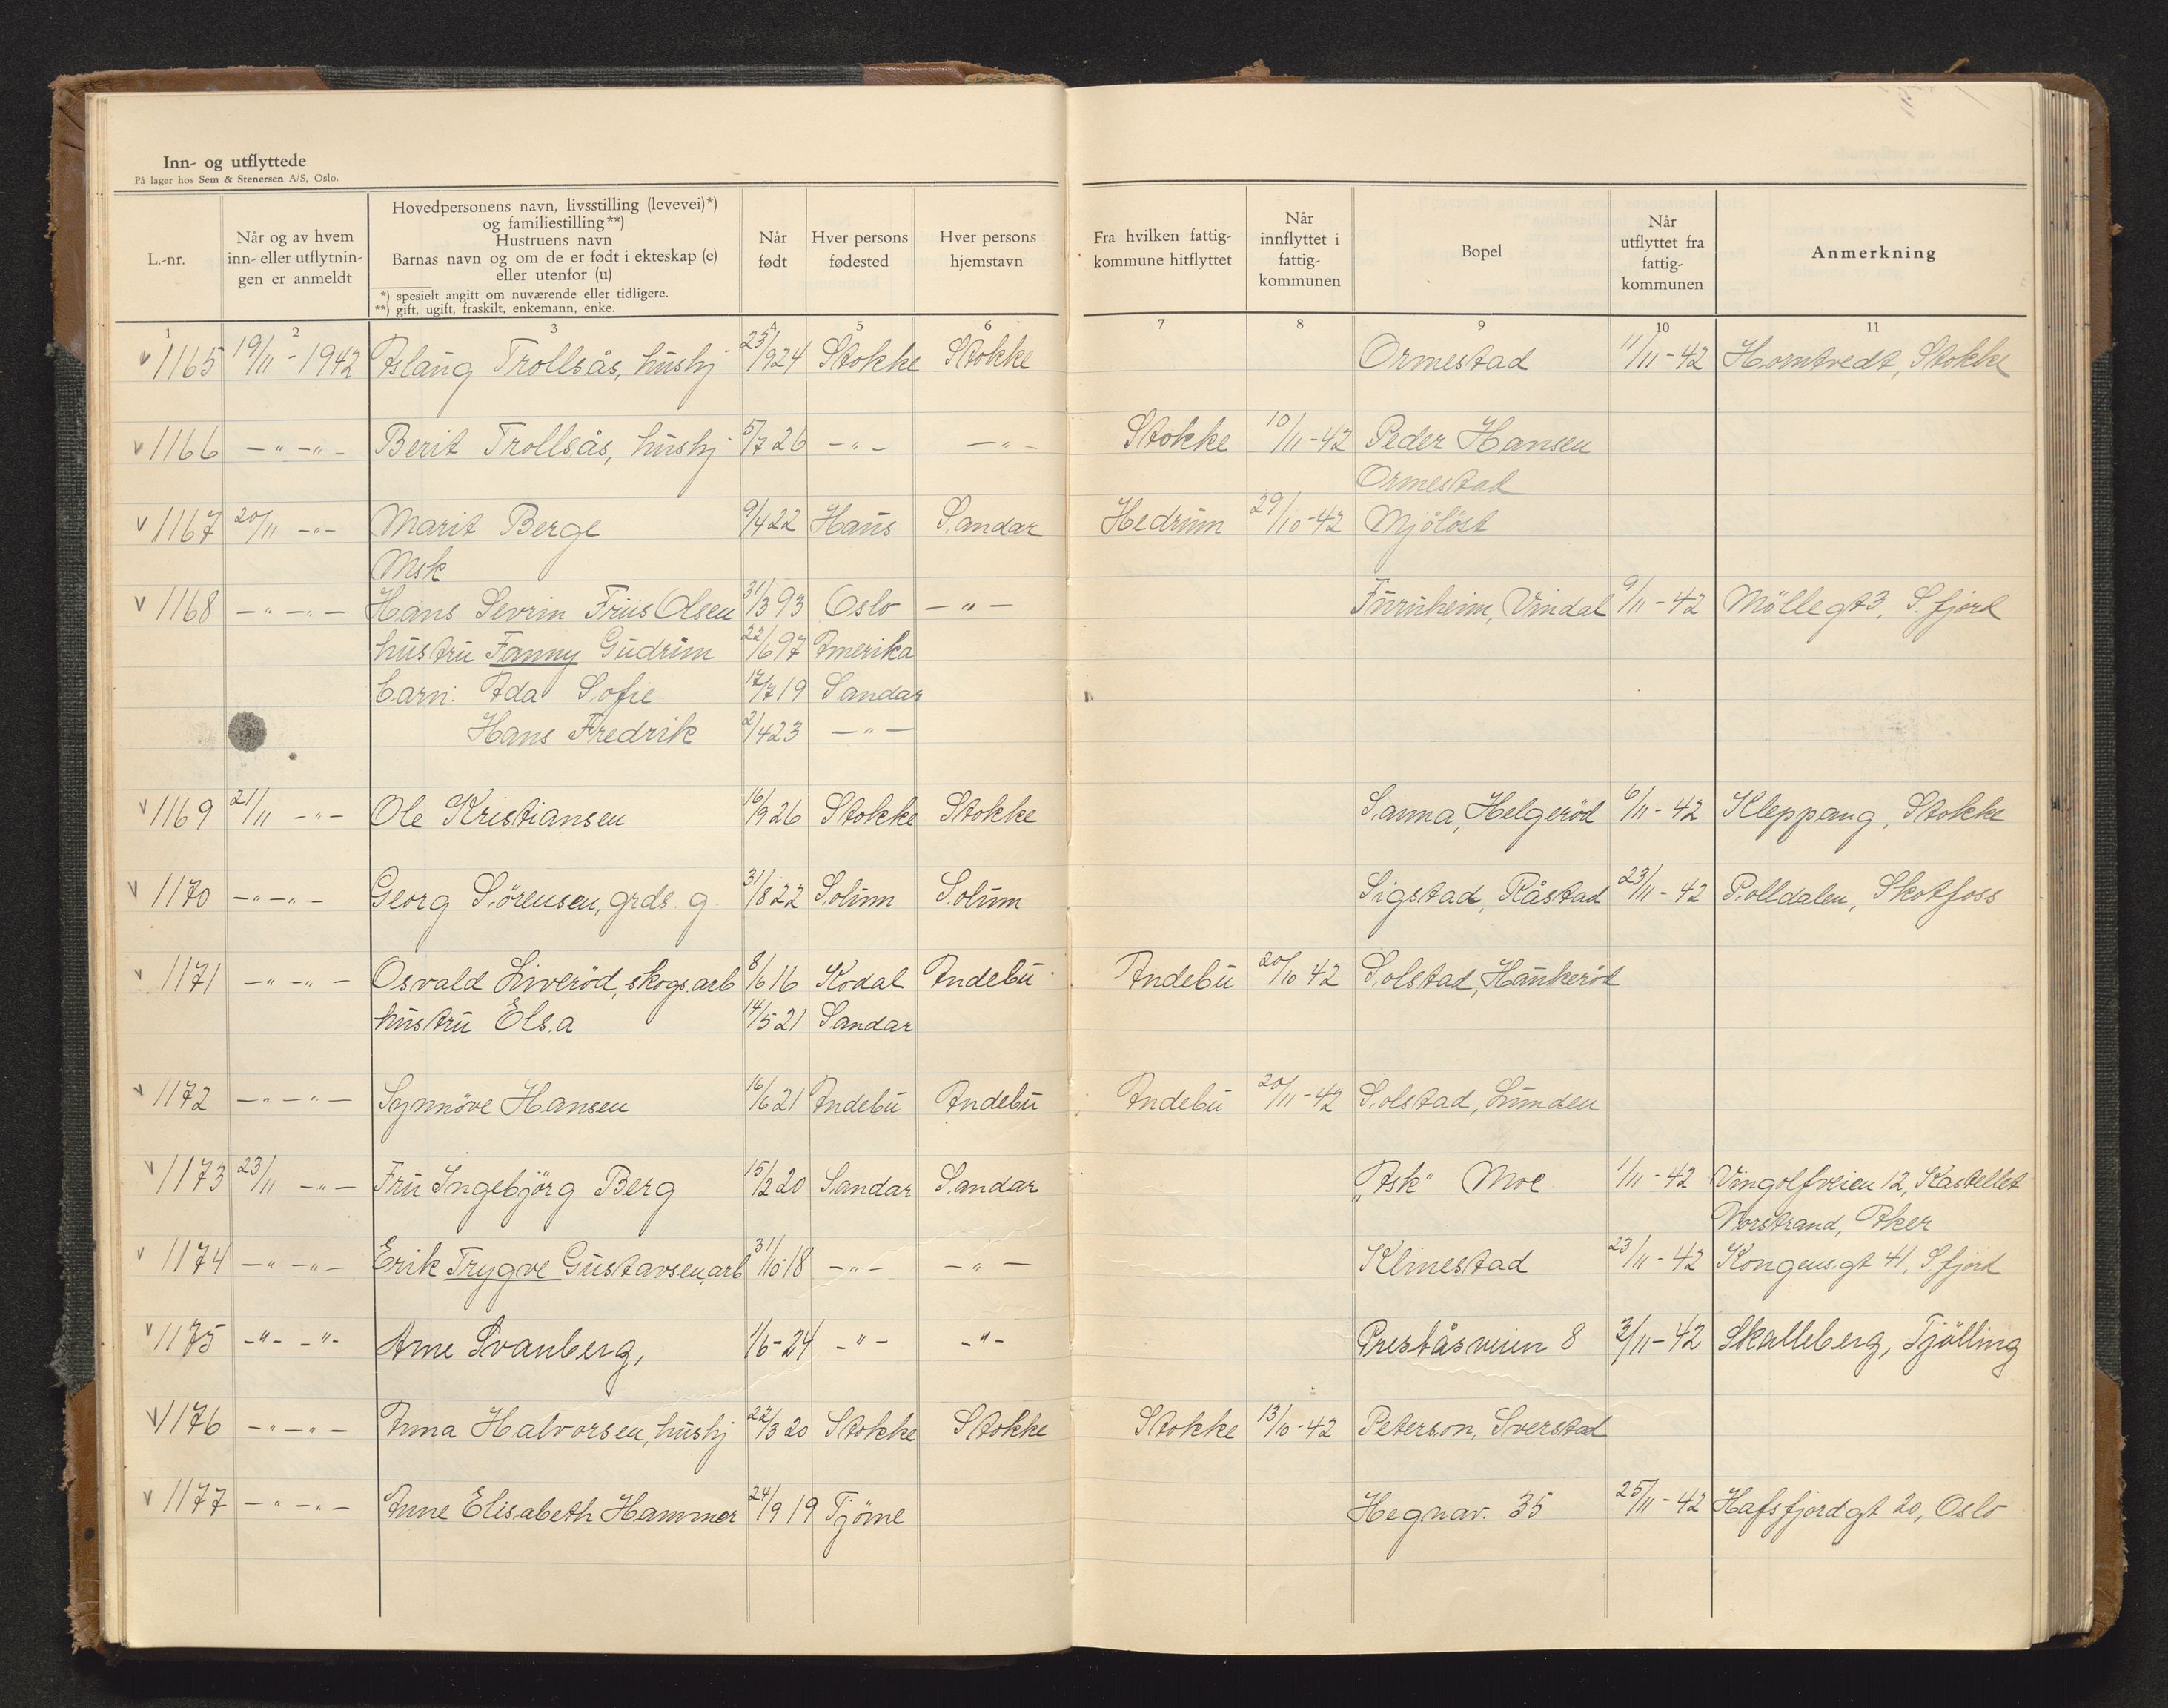 Inn- og utflyttede
På lager hos Sem & Stenersen A/S, Oslo.
L.-nr.
Når og av hvem
inn- eller utflytnin-
gen er anmeldt
Hovedpersonens navn, livsstilling (levevei)*)
og familiestilling **)
Hustruens navn
Barnas navn og om de er født i ekteskap (e)
eller utenfor (u)
*) spesielt angitt om nuværende eller tidligere.
**) gift, ugift, fraskilt, enkemann, enke.
Når
født
Hver persons
fødested
Hver persons
hjemstavn
Fra hvilken fattig-
kommune hitflyttet
Når
innflyttet i
fattig-
kommunen
Bopel
Når
utflyttet fra
fattig-
kommunen
Anmerkning
1 2 3 4 5 6 7 8 9 10 11
v 1165 19/11 - 1942 Aslaug Trollsås, hushj 23/924 Stokke Stokke Ormestad 11/11-42 Homtvedt, Stokke
v 1166 -"- -"- Berit Trollsås, hushj 5/7 26 -"- -"- Stokke 10/11-42 Peder Hansen
Ormestad
v 1167 20/11 -"- Marit Berge 9/4 22 Haus Sandar Hedrum 29/10-42 Mjölöst
Msk
v 1168 -"- -"- Hans Sevrin Friis Olsen 31/3 93 Oslo -"- Furuheim, Vindal 9/11-42 Möllegt 3, S.fjord
hustru Fanny Gudrun 22/6 97 Amerika
barn: Ada Sofie 17/7 19 Sandar
Hans Fredrik 2/4 23 -"-
v 1169 21/11 -"- Ole Kristiansen 16/9 26 Stokke Stokke Sanna, Helgerød 6/11-42 Kleppang, Stokke
v 1170 -"- -"- Georg Sörensen, grds. g. 31/8 22 Solum Solum Sigstad, Råstad 23/11-42 Polldalen, Skotfoss
v 1171 -"- -"- Osvald Liverød, skogs.arb 8/6 16 Kodal Andebu Andebu 20/10 42 Solstad, Haukerød
hustru Elsa 14/5 21 Sandar
v 1172 -"- -"- Synnöve Hansen 16/6 21 Andebu Andebu Andebu 20/11-42 Solstad, Lunden
v 1173 23/11 -"- Fru Ingebjörg Berg 15/2 20 Sandar Sandar "Ask" Moe 1/11-42 Vingolfveien 12, Kastellet
Norstrand, Aker
v 1174 -"- -"- Erik Trygve Gustavsen, arb 31/10 18 -"- -"- Klinestad 23/11-42 Kongensgt 41, S.fjord
v 1175 -"- -"- Arne Svanberg, 1/6-24 -"- -"- Preståsveien 8 3/11-42 Skalleberg, Tjölling
v 1176 -"- -"- Anna Halvorsen, hushj 22/3 20 Stokke Stokke Stokke 13/10-42 Peterson, Sverstad
v 1177 -"- -"- Anne Elisabeth Hammer 24/9 19 Tjöme Hegnav. 35 25/11-42 Hafsfjordgt 20, Oslo